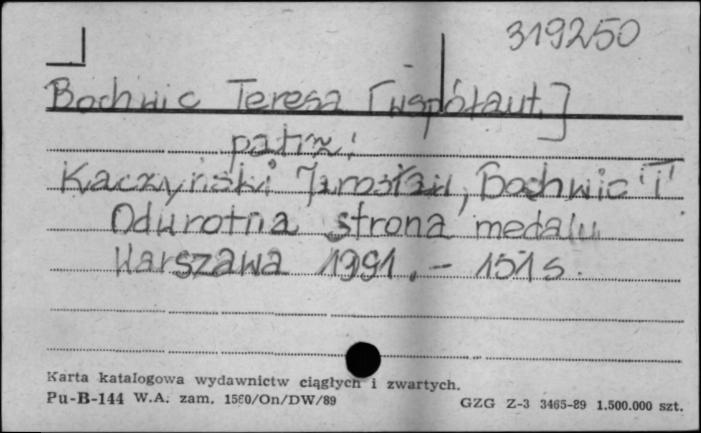 319250
Bochwic Teresa [współaut.]
patrz:
Kaczyński Jarosław, Bochwic T
Odwrotna strona medalu
Warszawa 1991. - 151 s.
Karta katalogowa wydawnictw ciągłych i zwartych.
Pu-B-144 W.A. zam. 1560/On/DW/89 GZG Z-3 3465-89 1.500.000 szt.